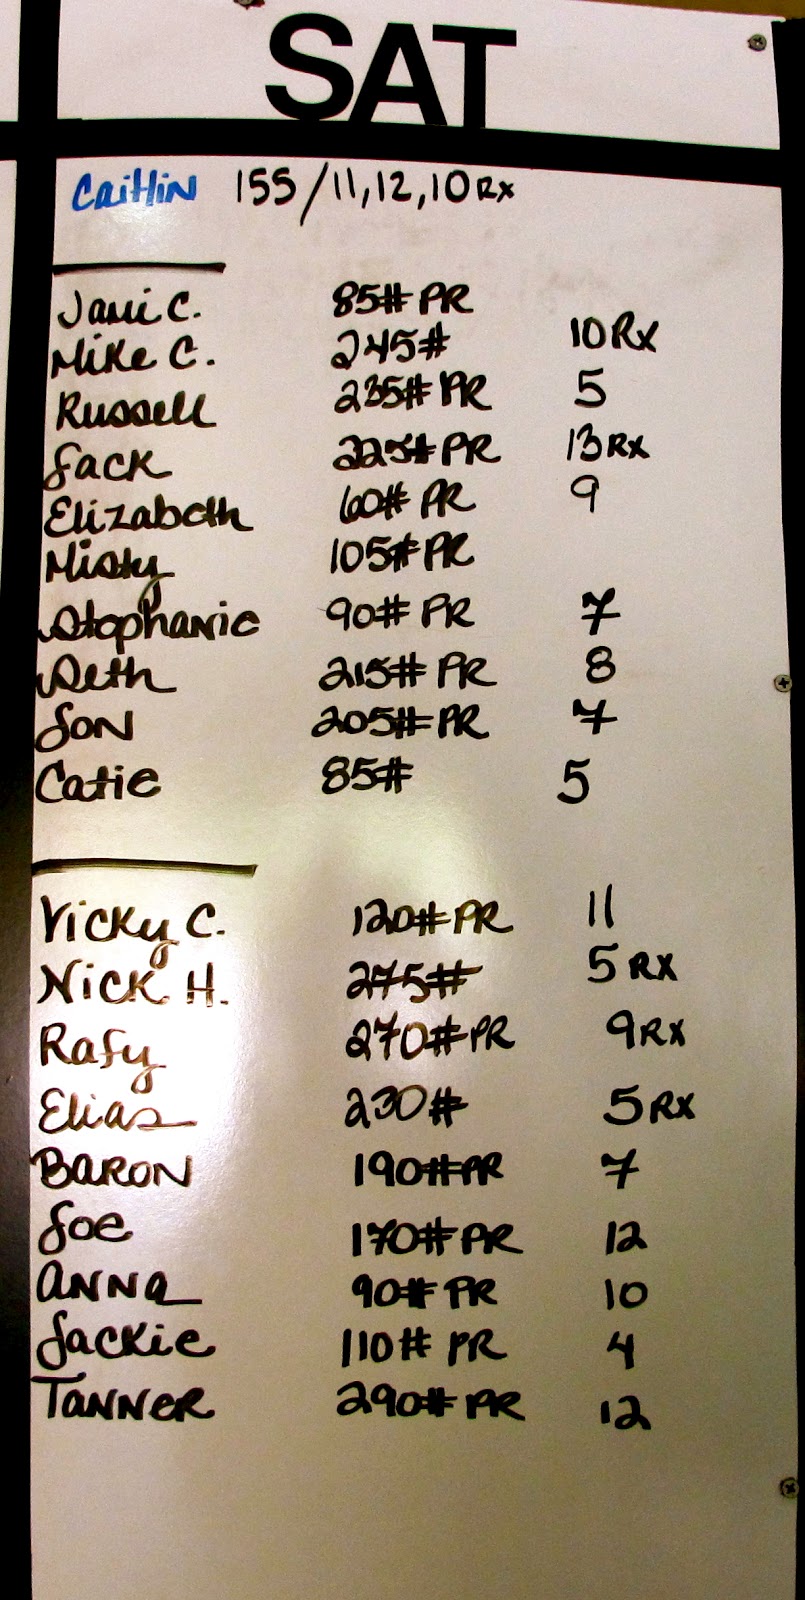 SAT
Caitlin 155/11,12,10 Rx
Jami C. 85# PR
Mike C. 245# 10 Rx
Russell 235# PR 5
Jack 225# PR 13 Rx
Elizabeth 60# PR 9
Misty 105# PR
Stephanie 90# PR 7
Seth 215# PR 8
Jon 205# PR 7
Catie 85# 5
Vicky C. 120# PR 11
Nick H. 275# 5 RX
Rafy 270# PR 9 RX
Elias 230# 5 RX
BARON 190# PR 7
Joe 170# PR 12
ANNA 90# PR 10
Jackie 110# PR 4
TANNER 290# PR 12